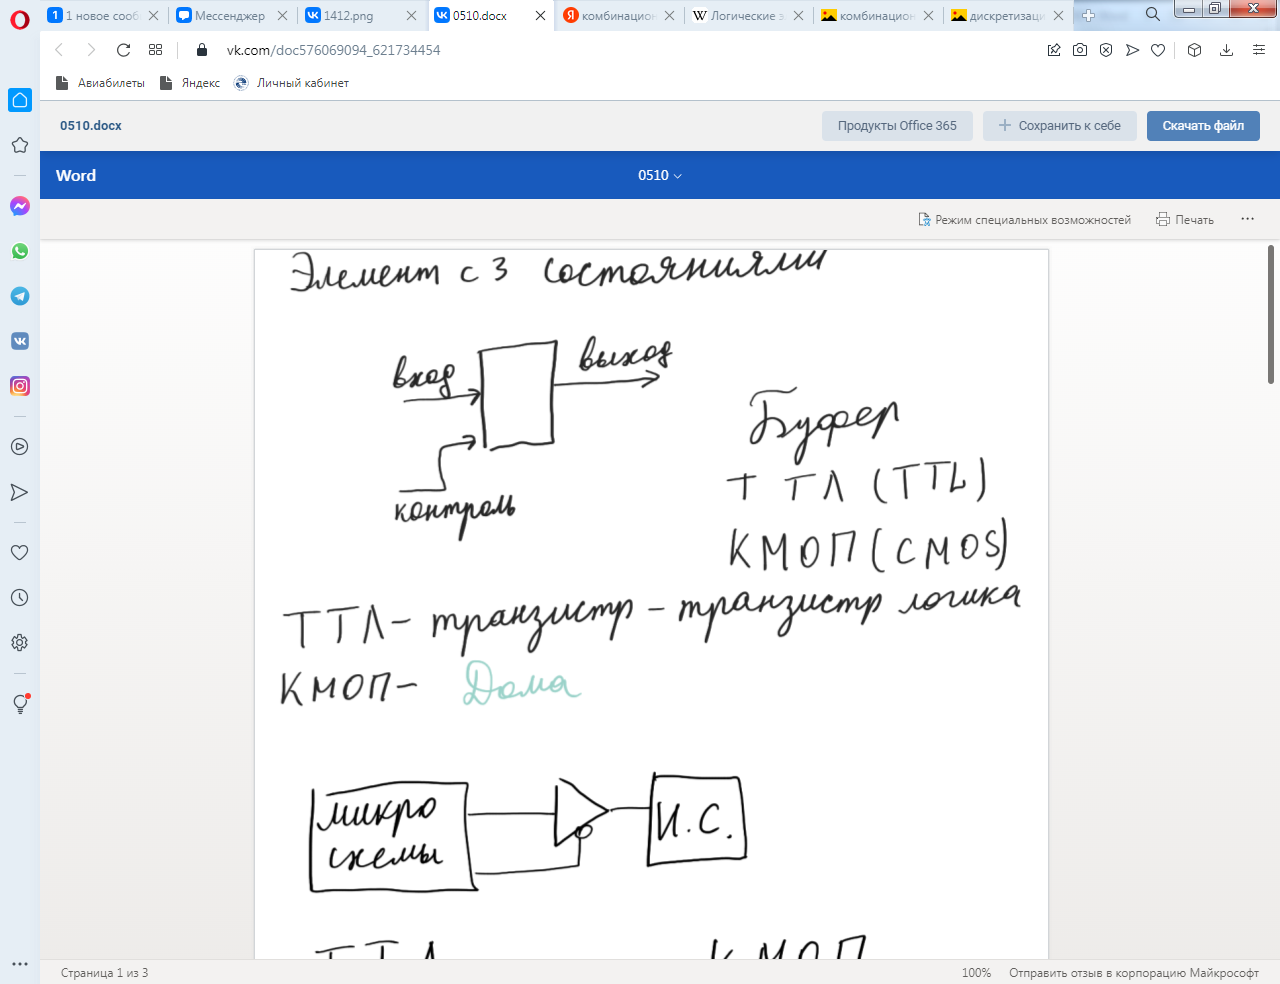 1 новое сооб
Мессенджер
1412.png
0510.docx
комбинацион
Логические э
комбинацион
дискретизаци
vk.com/doc576069094_621734454
Авиабилеты
Яндекс
Личный кабинет
0510.docx
Продукты Office 365
Сохранить к себе
Скачать файл
Word
0510
Режим специальных возможностей
Печать
Элемент с 3 состояниями
вход
выход
контроль
Буфер
ТТЛ (TTL)
КМОП (CMOS)
ТТЛ - транзистр - транзистр логика
КМОП - Дома
микро
схемы
И.С.
ТТЛ
КМОП
Страница 1 из 3
100%
Отправить отзыв в корпорацию Майкрософт